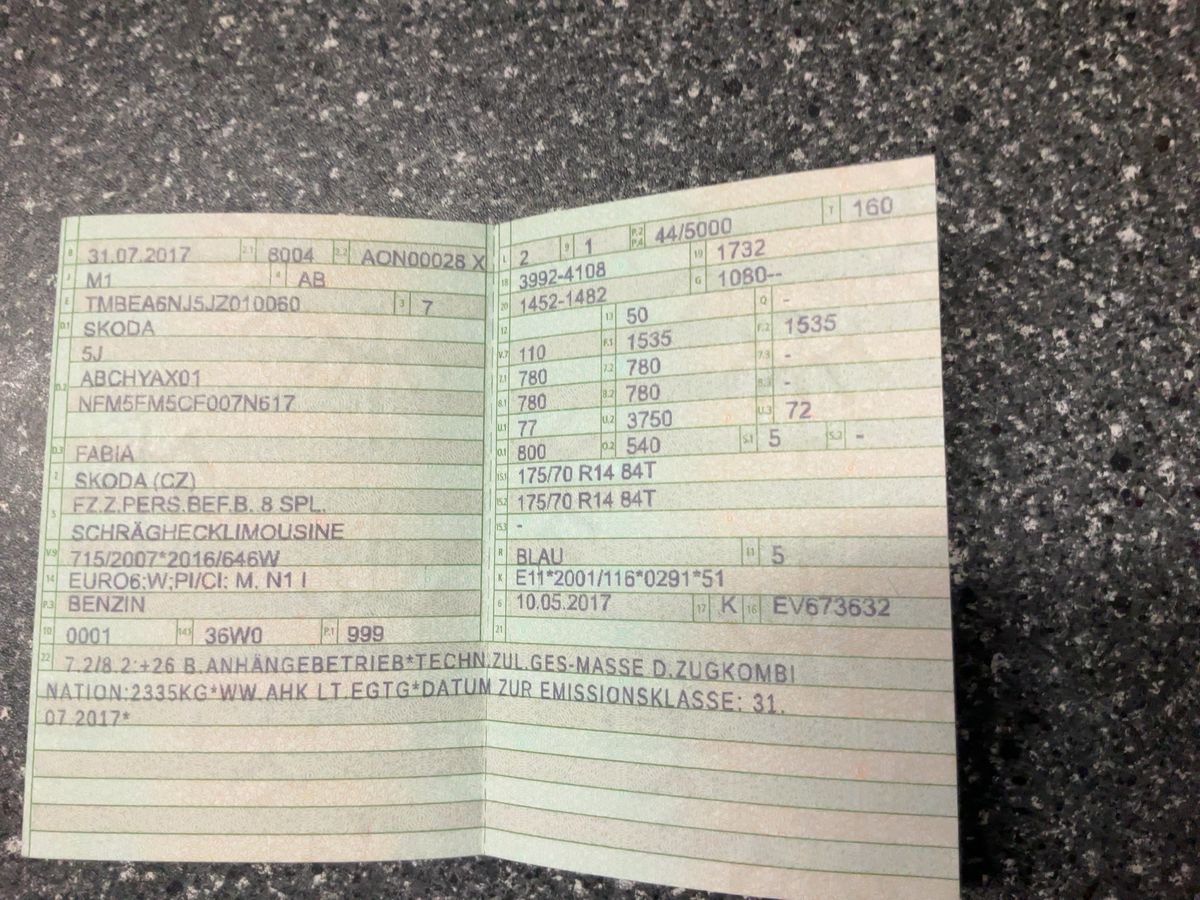 B 31.07.2017 2.1 8004 2.2 AON00028 X
J M1 4 AB
E TMBEA6NJ5JZ010060 3 7
D.1 SKODA
5J
D.2 ABCHYAX01
NFM5FM5CF007N617
D.3 FABIA
2 SKODA (CZ)
5 FZ.Z.PERS.BEF.B. 8 SPL.
SCHRÄGHECKLIMOUSINE
V.9 715/2007*2016/646W
14 EURO6;W;PI/CI: M, N1 I
P.3 BENZIN
10 0001 14.1 36W0 P.1 999
L 2 9 1 P.2 P.4 44/5000 T 160
18 3992-4108 19 1732
20 1452-1482 G 1080--
12 13 50 Q -
V.7 110 F.1 1535 F.2 1535
7.1 780 7.2 780 7.3 -
8.1 780 8.2 780 8.3 -
U.1 77 U.2 3750 U.3 72
O.1 800 O.2 540 S.1 5 S.2 -
15.1 175/70 R14 84T
15.2 175/70 R14 84T
15.3 -
R BLAU 11 5
K E11*2001/116*0291*51
6 10.05.2017 17 K 16 EV673632
21
22 7.2/8.2:+26 B.ANHÄNGEBETRIEB*TECHN.ZUL.GES-MASSE D.ZUGKOMBI
NATION:2335KG*WW.AHK LT.EGTG*DATUM ZUR EMISSIONSKLASSE: 31.
07.2017*